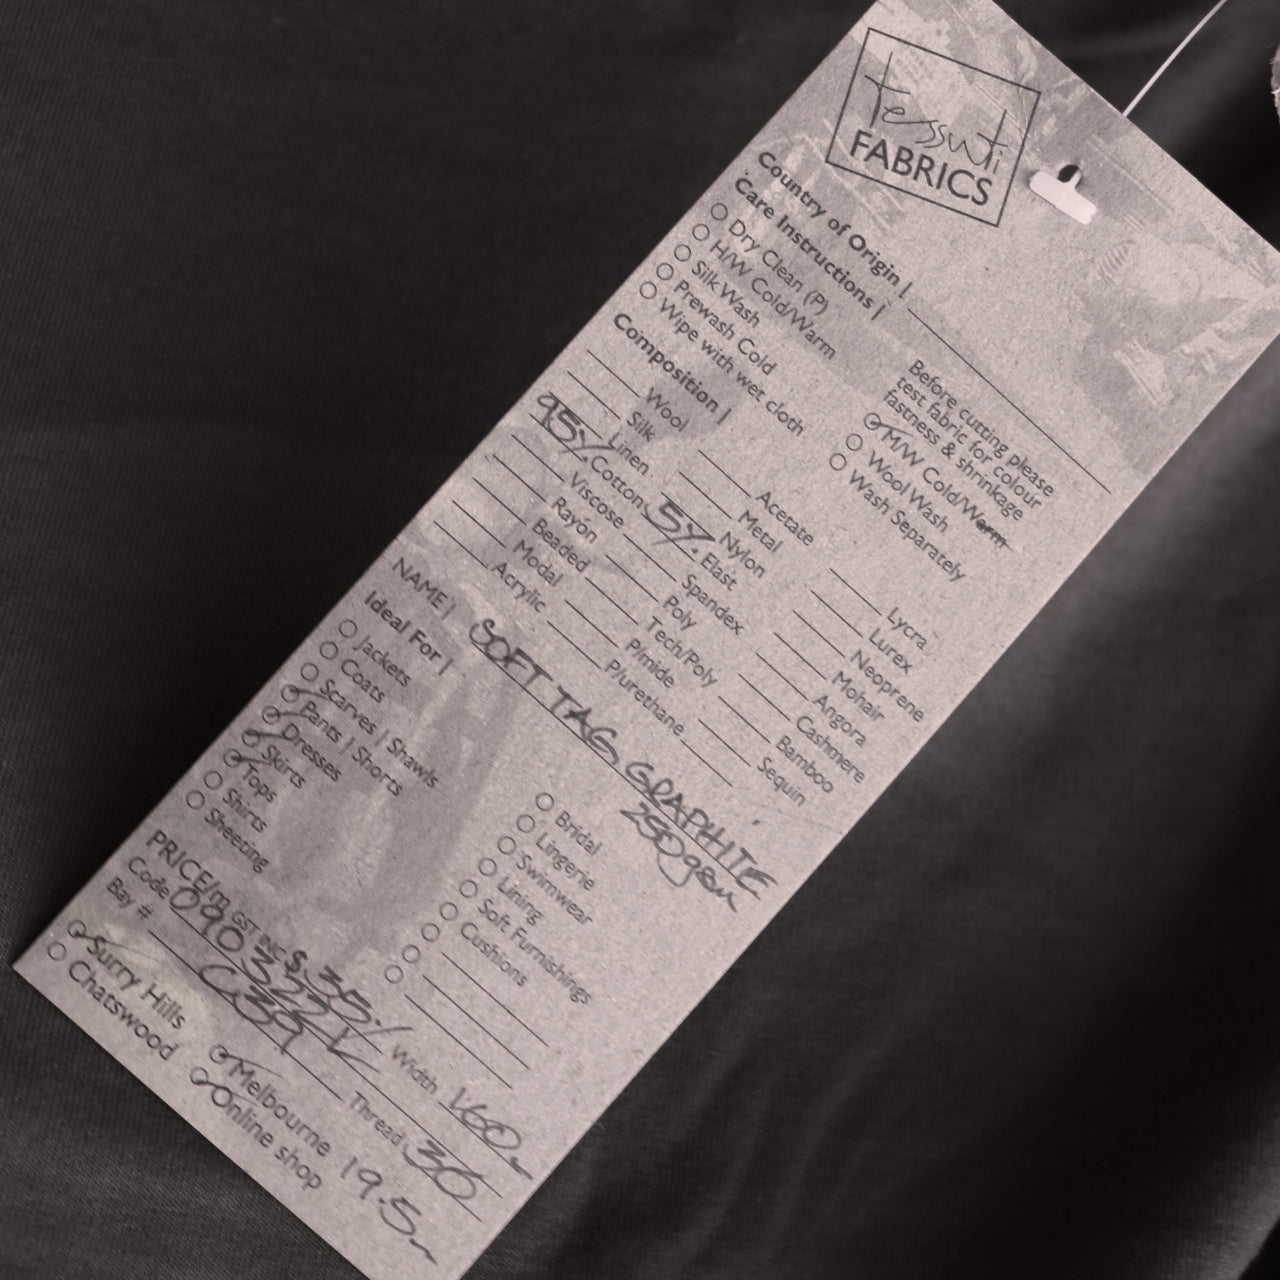 tessuti
FABRICS
Country of Origin |
Care Instructions |
Dry Clean (P)
H/W Cold/Warm
Silk Wash
Prewash Cold
Wipe with wet cloth
Before cutting please
test fabric for colour
fastness & shrinkage
M/W Cold/Warm
Wool Wash
Wash Separately
Composition |
Wool
Silk
Linen
95% Cotton
Viscose
Rayon
Beaded
Modal
Acrylic
Acetate
Metal
Nylon
5% Elast
Spandex
Poly
Tech/Poly
P/mide
P/urethane
Lycra
Lurex
Neoprene
Mohair
Angora
Cashmere
Bamboo
Sequin
NAME | SOFT TAG GRAPHITE
250gsm
Ideal For |
Jackets
Coats
Scarves | Shawls
Pants | Shorts
Dresses
Skirts
Tops
Shirts
Sheeting
Bridal
Lingerie
Swimwear
Lining
Soft Furnishings
Cushions
PRICE/m GST INC $35
Code 090 323 Width 1.60m
Bay # C39 Thread 36
Surry Hills
Chatswood
Melbourne
Online shop 19.5m